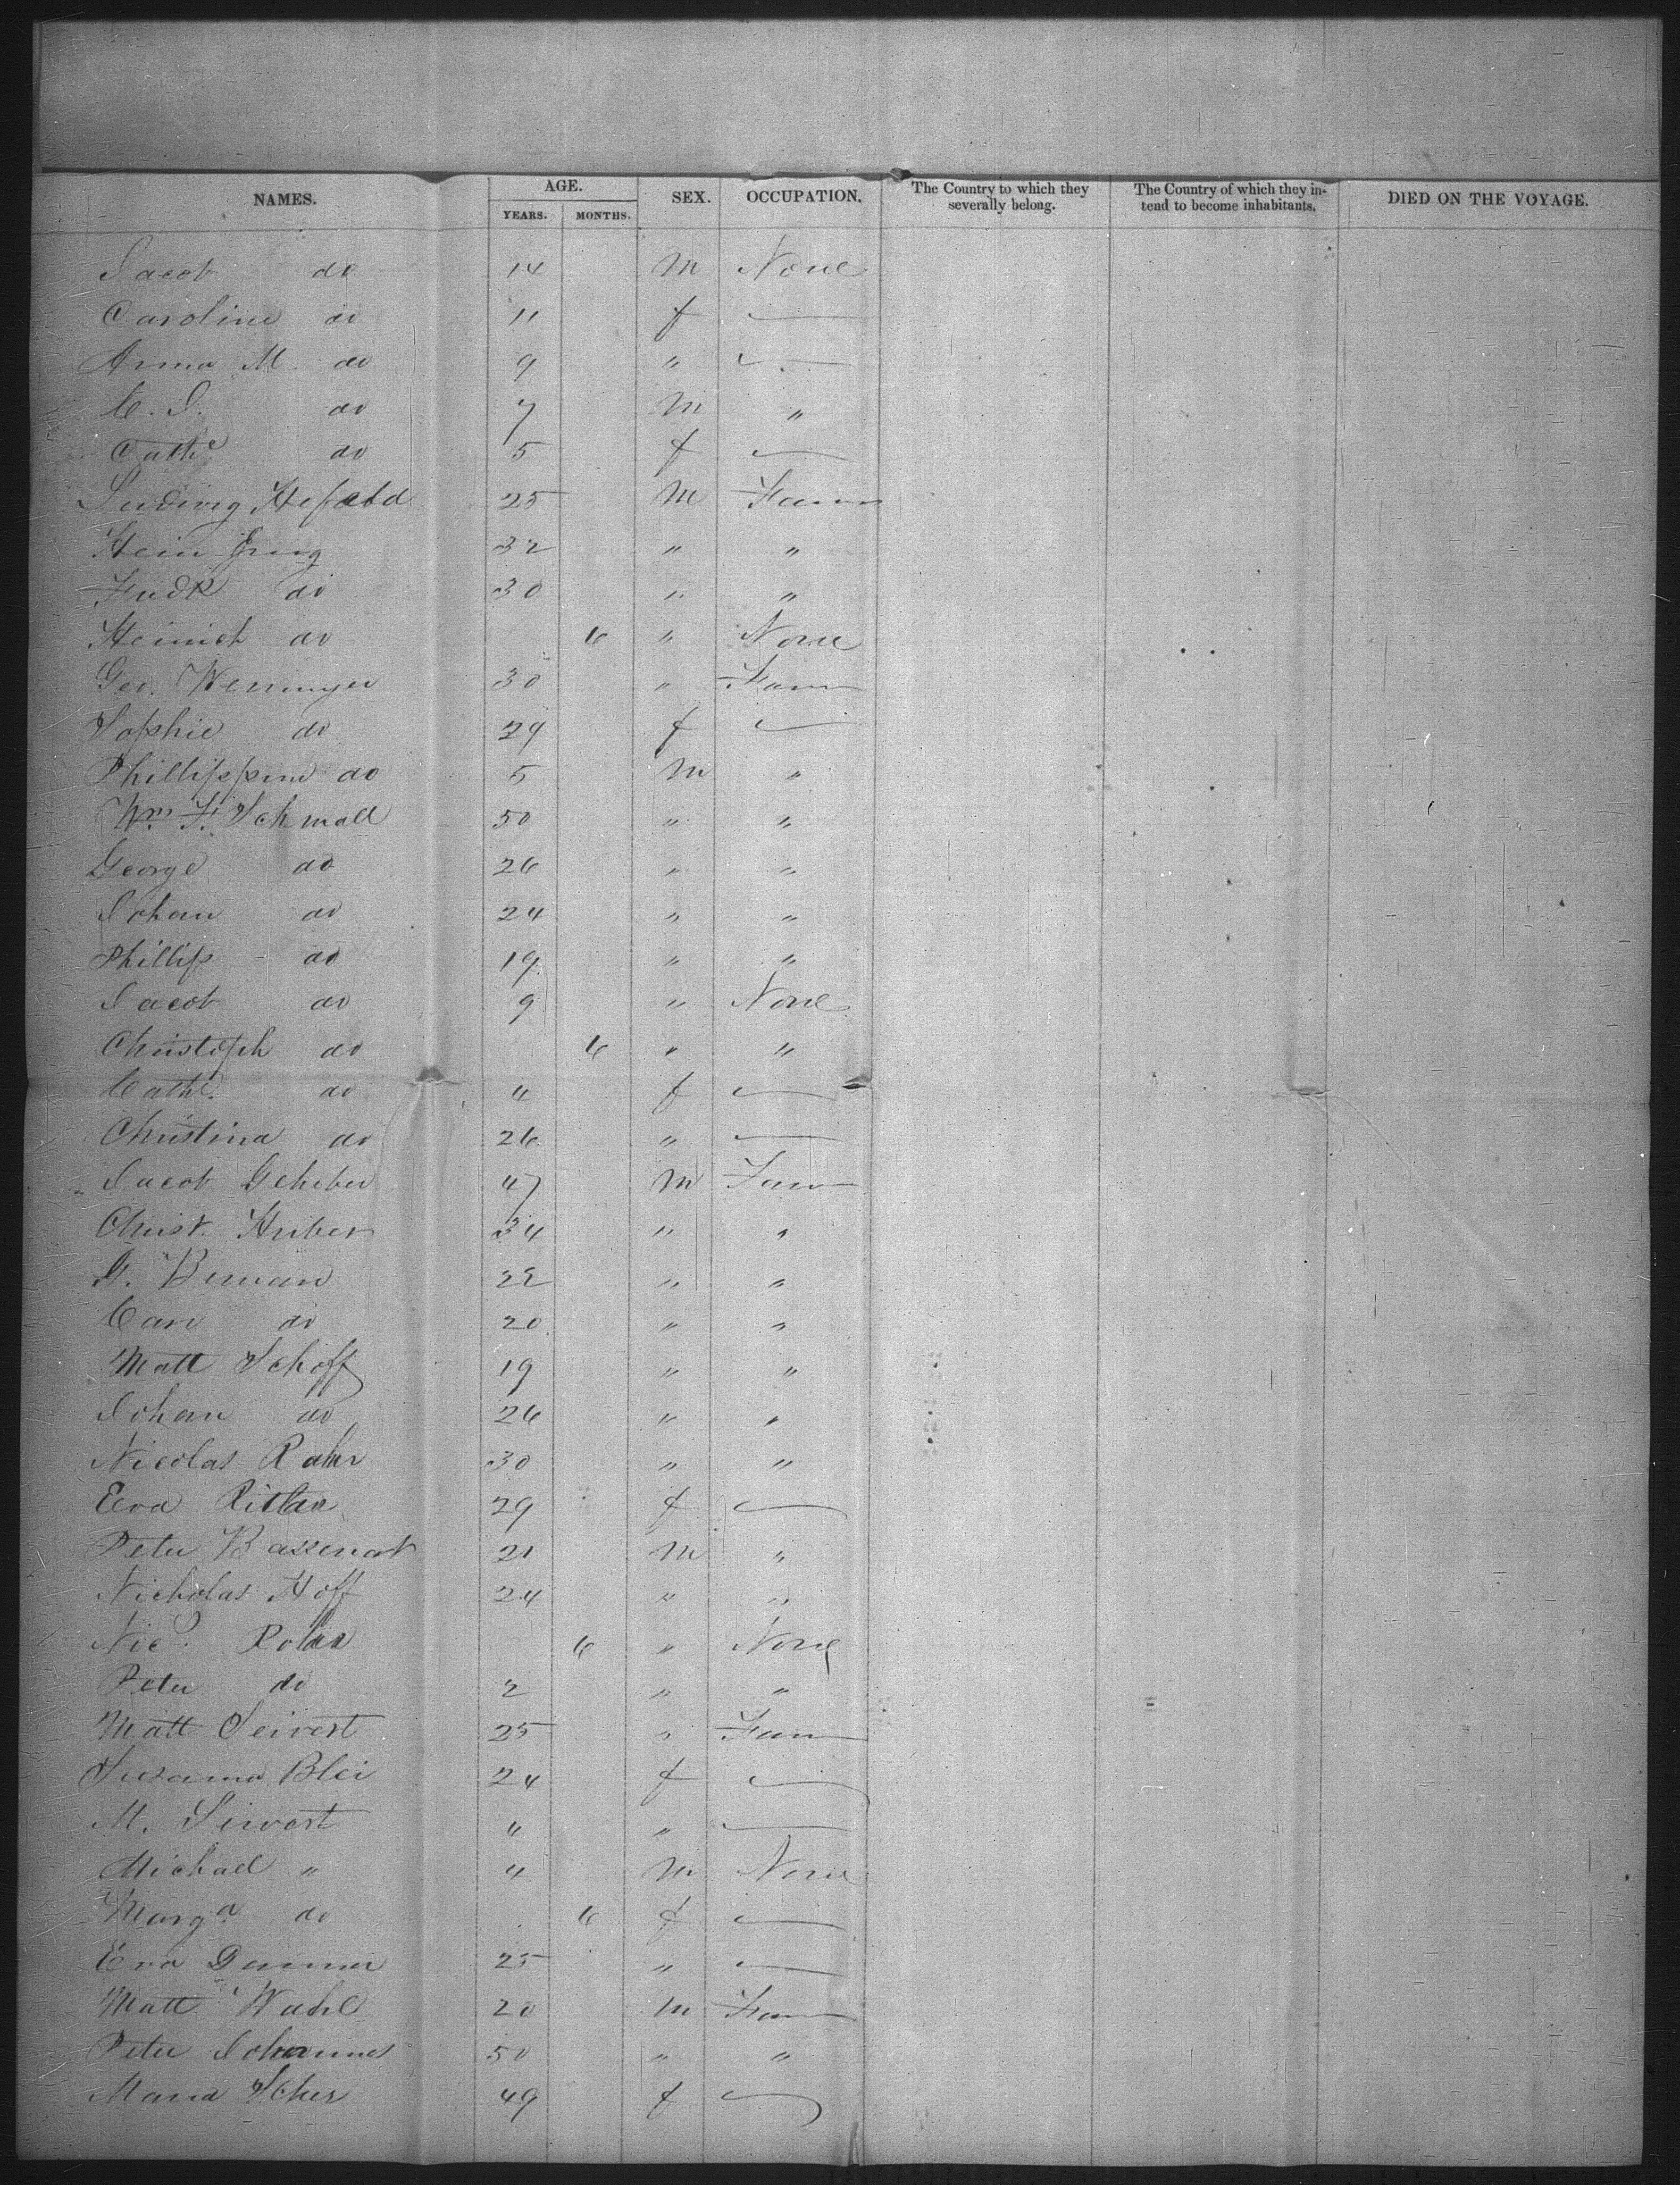 NAMES. AGE. YEARS. MONTHS. SEX. OCCUPATION. The Country to which they severally belong. The Country of which they intend to become inhabitants. DIED ON THE VOYAGE.
Jacob do 14 M None
Caroline do 11 f —
Anna M. do 9 " —
C. J. do 7 M "
Cathe do 5 f —
Ludwig 25 M Farm
Hein 32 " "
do 30 " "
Heinich do 6 " None
Geo. Werninger 30 " Farm
Sophie do 29 f —
Phillippine do 5 M "
Wm. F. Schmall 50 " "
George do 26 " "
Johan do 24 " "
Phillip do 19 " "
Jacob do 9 " None
Christoph do 6 " "
Cathe. do 4 f —
Christina do 26 " —
Jacob 47 M Farm
Christ. Huber 34 " "
22 " "
do 20 " "
Matt Schoff 19 " "
Johan do 26 " "
Nicolas 30 " "
Eva 29 f —
Peter 21 M "
Nicholas Hoff 24 " "
Nic. 6 " None
Peter do 2 " "
Matt Seivert 25 " Farm
Susanna Blei 24 f —
M. Seivert " " —
Michael " 4 M None
Marga do 6 f —
Eva 25 " —
Matt Wahl 20 M Farm
Peter Johannes 50 " "
Maria Scher 49 f —